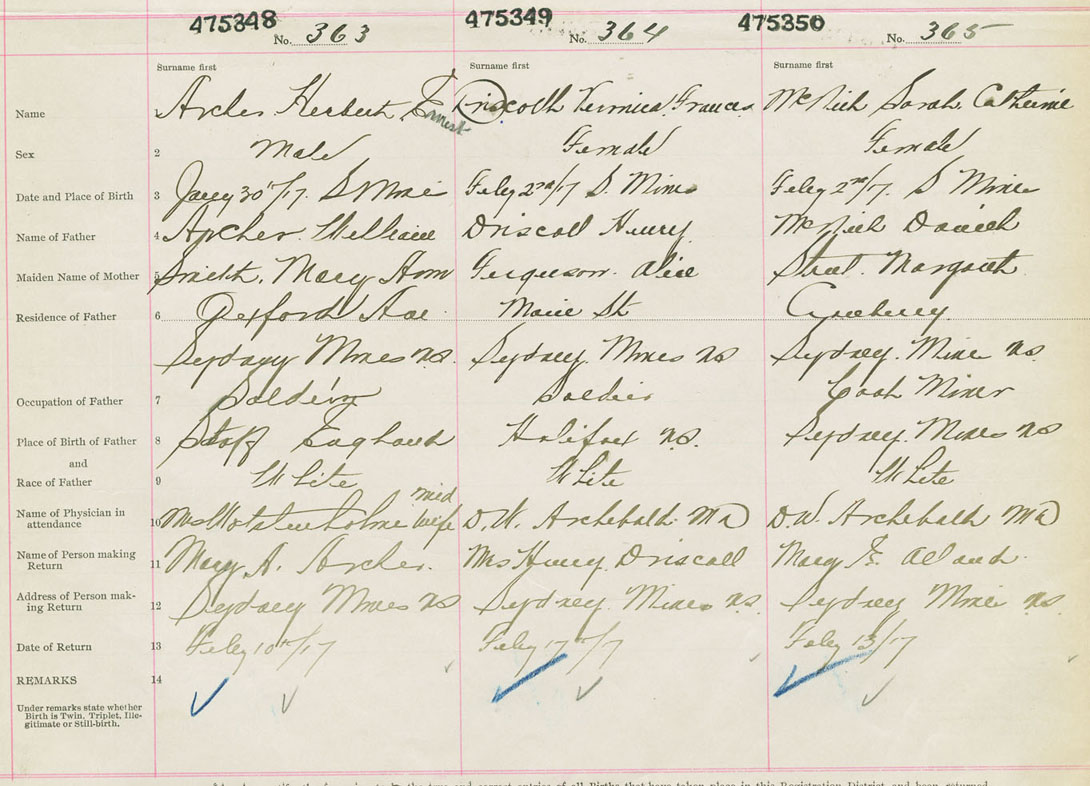 475348 475349 475350
No. 363 No. 364 No. 365
Surname first Surname first Surname first
Name 1 Archer Herbert Ernest Driscoll Vernica Frances McNeil Sarah Catherine
Sex 2 Male Female Female
Date and Place of Birth 3 Jany 30th/17. S Mines Feby 2nd/17 S. Mines Feby 2nd/17. S Mines
Name of Father 4 Archer. William Driscoll Henry McNeil Daniel
Maiden Name of Mother 5 Smith, Mary Ann Ferguson. Alice Margaret
Residence of Father 6 Oxford Ave Main St
Sydney Mines NS. Sydney Mines NS Sydney. Mines NS.
Occupation of Father 7 Soldier Soldier Coal Miner
Place of Birth of Father 8 Staff England Halifax N.S. Sydney. Mines NS
and
Race of Father 9 White White White
Name of Physician in
attendance 10 Mrs Wolstenholme mid wife D.W. Archibald MD D.W. Archibald MD
Name of Person making
Return 11 Mary A. Archer. Mrs Henry Driscoll Mary
Address of Person mak-
ing Return 12 Sydney Mines NS Sydney. Mines N.S. Sydney Mines NS.
Date of Return 13 Feby 10th/17 Feby 17th/17 Feby 13/17
REMARKS 14
Under remarks state whether
Birth is Twin, Triplet, Ille-
gitimate or Still-birth.